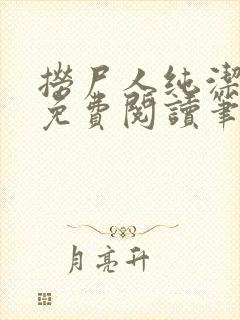 撈尸人純潔
免費閱讀筆
月亮升